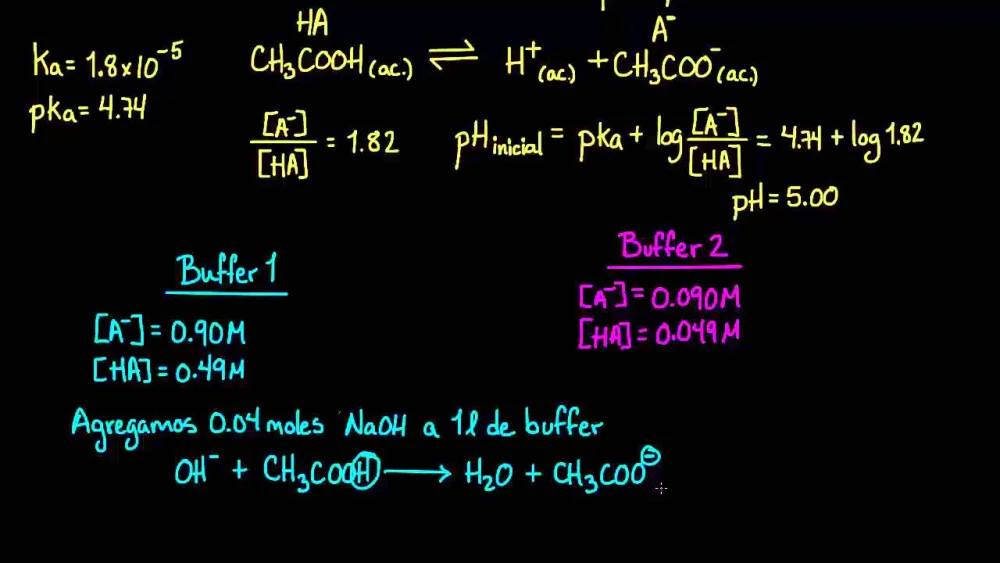 HA
A⁻
Ka = 1.8×10⁻⁵
CH₃COOH(ac.) ⇌ H⁺(ac.) + CH₃COO⁻(ac.)
pka = 4.74
[A⁻]/[HA] = 1.82
pH inicial = pka + log [A⁻]/[HA] = 4.74 + log 1.82
pH = 5.00
Buffer 1
[A⁻] = 0.90M
[HA] = 0.49M
Buffer 2
[A⁻] = 0.090M
[HA] = 0.049M
Agregamos 0.04 moles NaOH a 1l de buffer
OH⁻ + CH₃COOH ⟶ H₂O + CH₃COO⁻